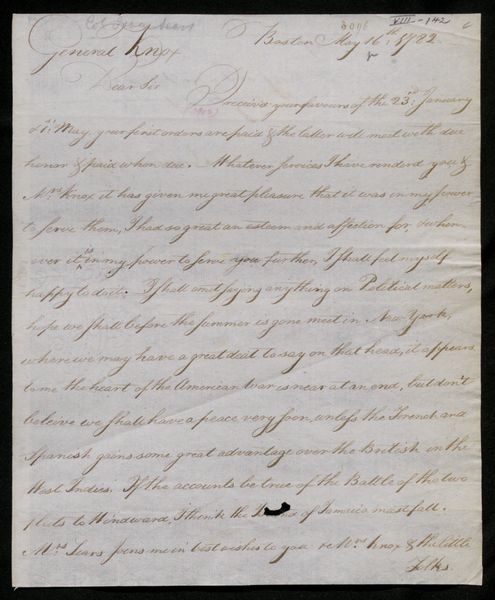 Col Isaac Sears
VIII - 142
General Knox
Boston May 16th: 1782
Dear Sir
I receiv'd your favours of the 23d: January
& 1t: May, your first orders are paid & the latter will meet with due
honor & paid when due. Whatever services I have renderd you &
Mrs: Knox it has given me great pleasure that it was in my power
to serve them, I had so great an esteem and affection for, & when-
ever it is in my power to serve you further, I shall feel myself
happy to do it. I shall omit saying anything on Political matters,
hope we shall before the summer is gone meet in New York,
where we may have a great deal to say on that head, it appears
to me the heart of the American War is near at an end, but don't
beleive we shall have a peace very soon, unless the French and
Spanish gains some great advantage over the British in the
West Indies. If the accounts be true of the Battle of the two
fleets to Windward, I think the of Jamaica must fall.
Mrs: Sears joins me in best wishes to you & Mrs: Knox & the little
folks.